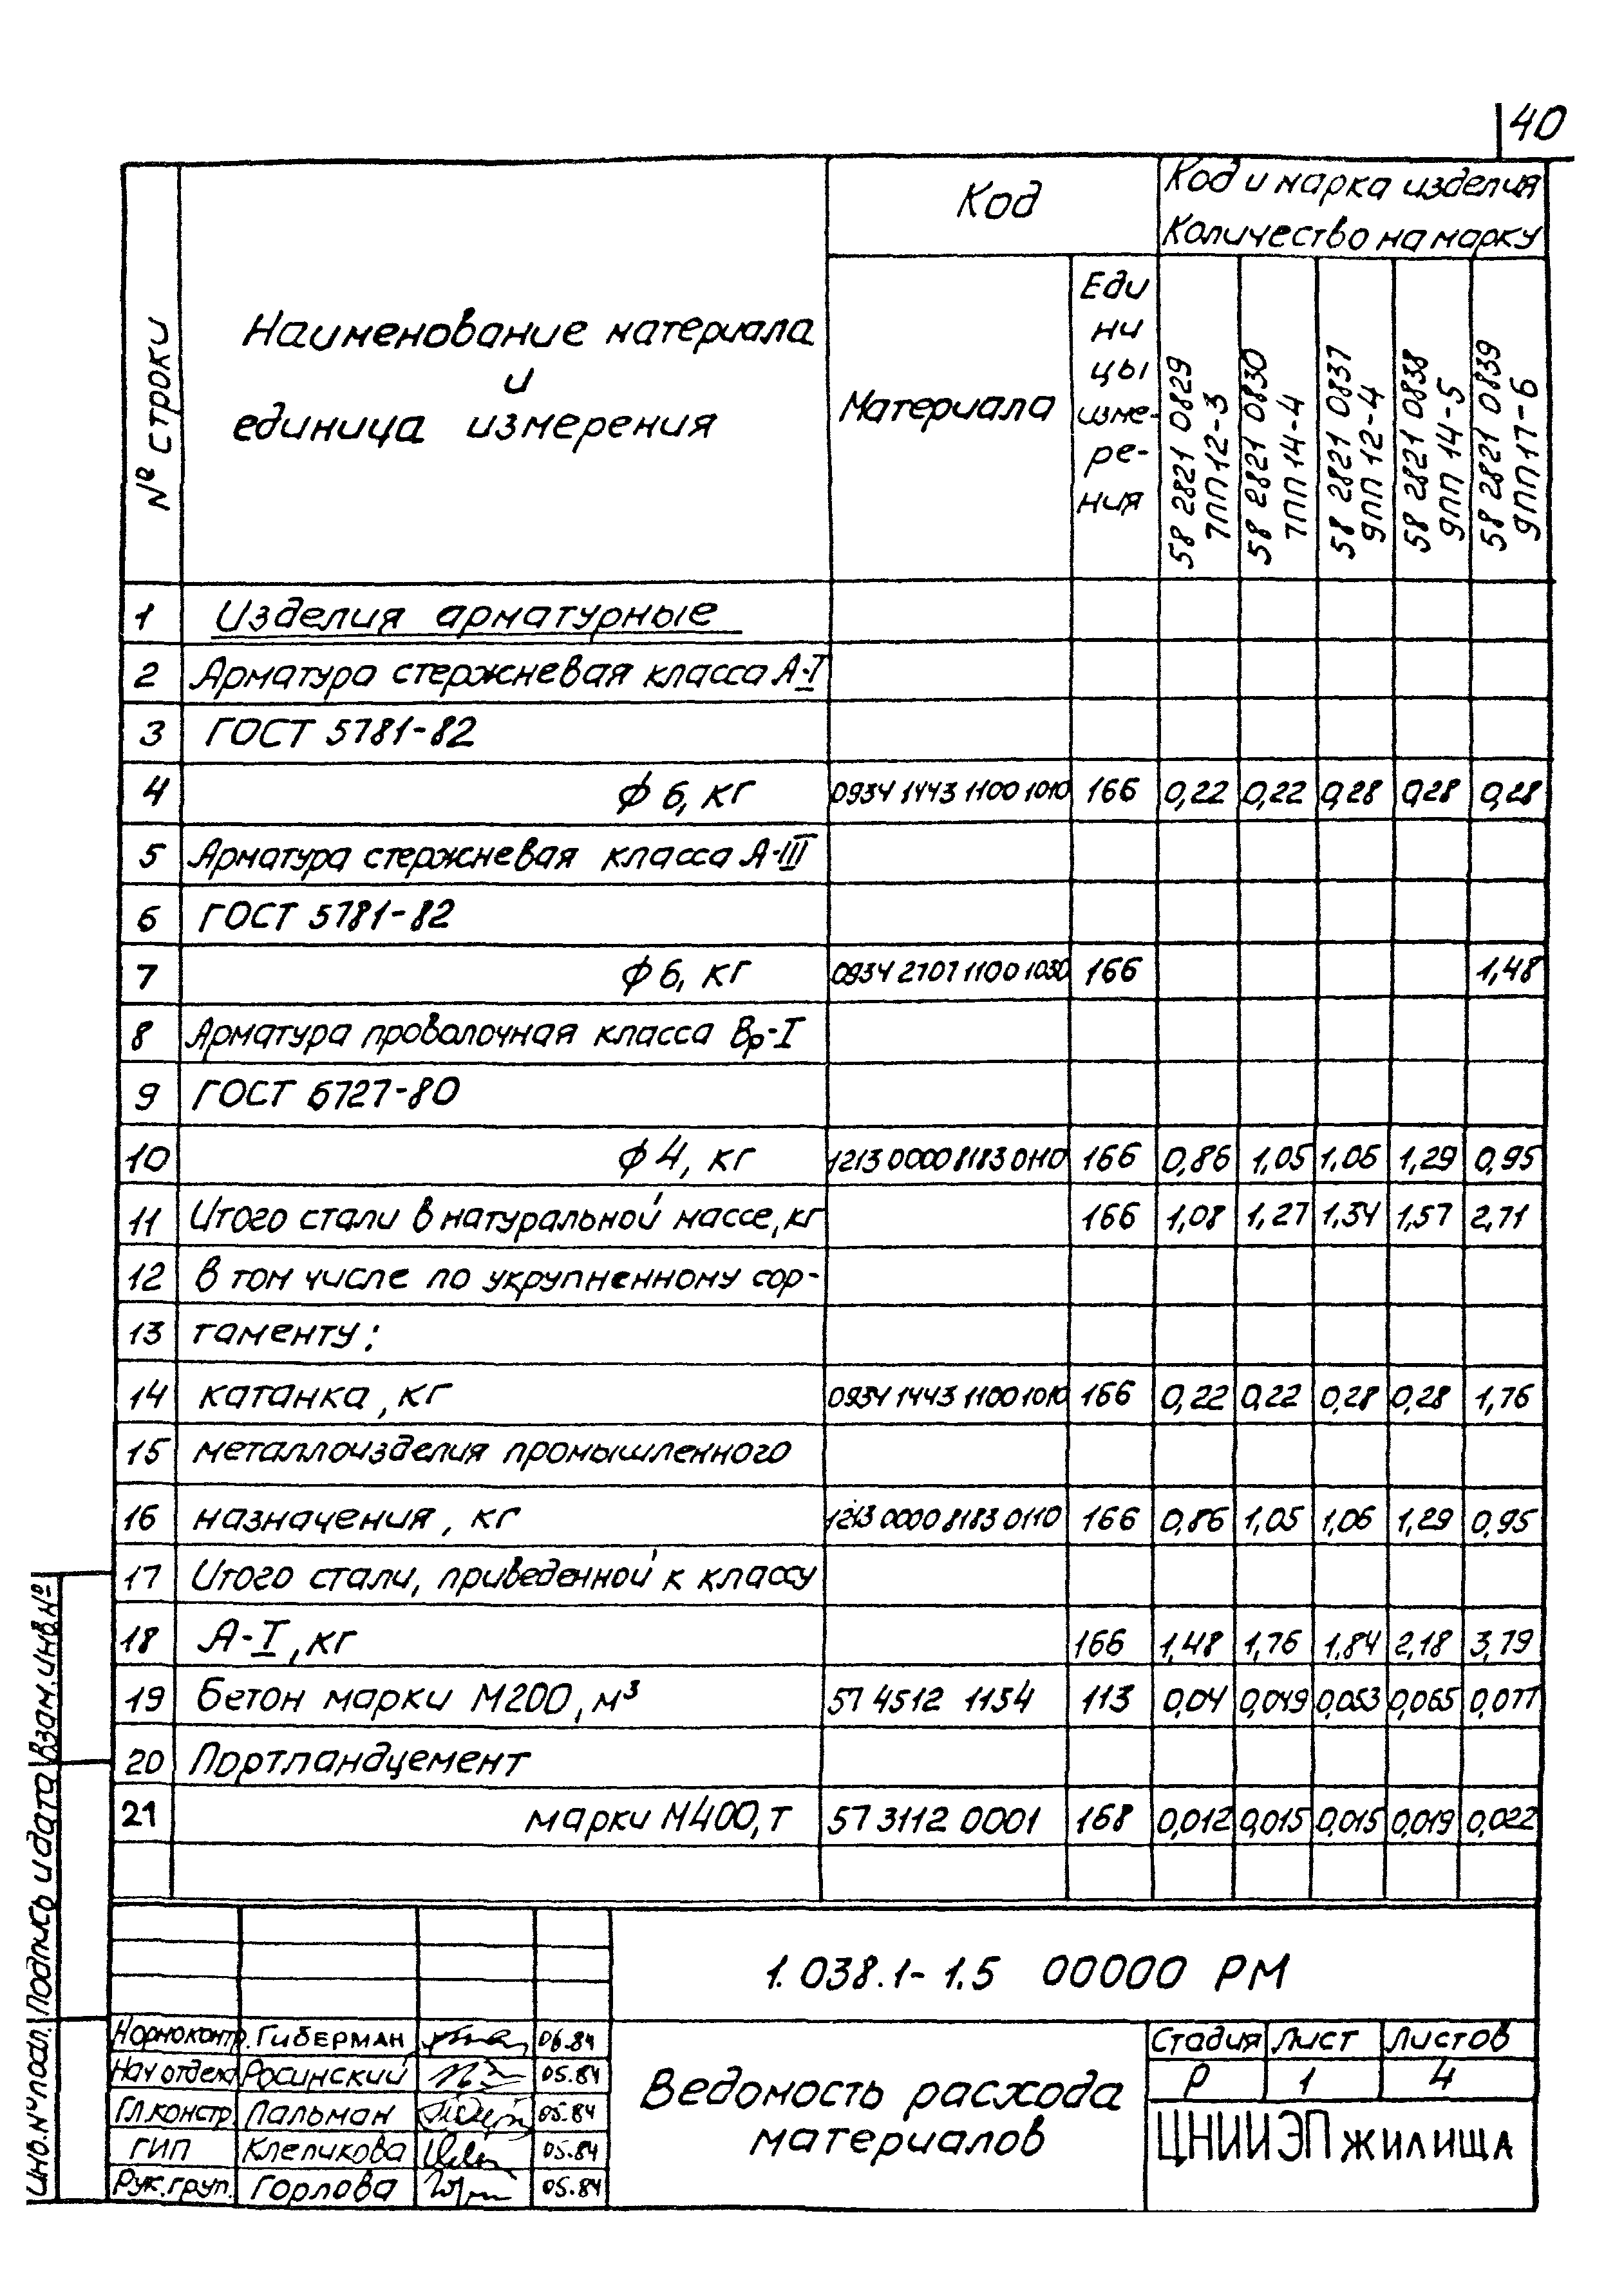 40
№ строки
Наименование материала
и
единица измерения
Код
Материала
Еди
ни
цы
изме-
ре-
ния
Код и марка изделия
Количество на марку
58 2821 0829
7ПП 12-3
58 2821 0830
7ПП 14-4
58 2821 0837
9ПП 12-4
58 2821 0838
9ПП 14-5
58 2821 0839
9ПП 17-6
1 Изделия арматурные
2 Арматура стержневая класса А-I
3 ГОСТ 5781-82
4 ϕ 6, кг 0934 1443 1100 1010 166 0,22 0,22 0,28 0,28 0,28
5 Арматура стержневая класса А-III
6 ГОСТ 5781-82
7 ϕ 6, кг 0934 2707 1100 1030 166 1,48
8 Арматура проволочная класса Вр-I
9 ГОСТ 6727-80
10 ϕ 4, кг 1213 0000 8183 0110 166 0,86 1,05 1,06 1,29 0,95
11 Итого стали в натуральной массе, кг 166 1,08 1,27 1,34 1,57 2,71
12 в том числе по укрупненному сор-
13 таменту:
14 катанка, кг 0934 1443 1100 1010 166 0,22 0,22 0,28 0,28 1,76
15 металлоизделия промышленного
16 назначения, кг 1213 0000 8183 0110 166 0,86 1,05 1,06 1,29 0,95
17 Итого стали, приведенной к классу
18 А-I, кг 166 1,48 1,76 1,84 2,18 3,79
19 Бетон марки М200, м³ 57 4512 1154 113 0,04 0,049 0,053 0,065 0,077
20 Портландцемент
21 марки М400, т 57 3112 0001 168 0,012 0,015 0,015 0,019 0,022
Инв. № подл. Подпись и дата Взам. инв. №
1.038.1-1.5 00000 РМ
Нормоконтр. Гиберман 06.84
Нач отдела Росинский 05.84
Гл. констр. Пальман 05.84
ГИП Клепикова 05.84
Рук. груп. Горлова 05.84
Ведомость расхода
материалов
Стадия Лист Листов
Р 1 4
ЦНИИЭП жилища